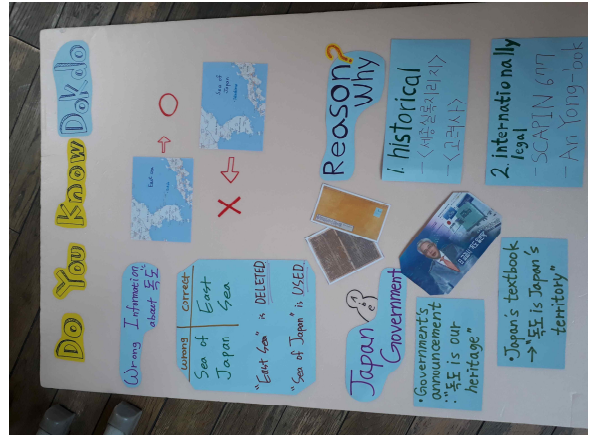 Do You Know Dokdo
Wrong Information
about 독도
wrong correct
Sea of East
Japan Sea
"East Sea" is DELETED
"Sea of Japan" is USED.
East sea
O
X
Sea of
Japan
Japan
Government
•Government's
announcement
: "독도 is our
heritage"
•Japan's textbook
→"독도 is Japan's
territory"
Reason?
Why
1. historical
-<세종실록지리지>
-<고려사>
2. internationally
legal
- SCAPIN 677
- An Yong-book